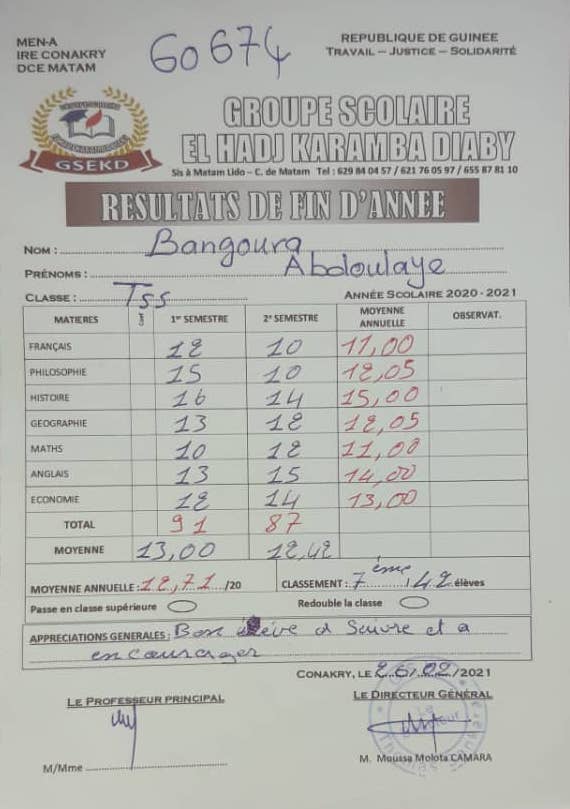 MEN-A
IRE CONAKRY
DCE MATAM
60674
REPUBLIQUE DE GUINEE
TRAVAIL – JUSTICE – SOLIDARITÉ
GSEKD
GROUPE SCOLAIRE
EL HADJ KARAMBA DIABY
Sis à Matam Lido – C. de Matam Tel : 629 84 04 57 / 621 76 05 97 / 655 87 81 10
RESULTATS DE FIN D'ANNEE
NOM : Bangoura
PRÉNOMS : Abdoulaye
CLASSE : Tss ANNÉE SCOLAIRE 2020 - 2021
MATIERES Coef 1er SEMESTRE 2e SEMESTRE MOYENNE ANNUELLE OBSERVAT.
FRANÇAIS 12 10 11,00
PHILOSOPHIE 15 10 12,05
HISTOIRE 16 14 15,00
GEOGRAPHIE 13 12 12,05
MATHS 10 12 11,00
ANGLAIS 13 15 14,00
ECONOMIE 12 14 13,00
TOTAL 91 87
MOYENNE 13,00 12,42
MOYENNE ANNUELLE : 12,71 /20 CLASSEMENT : 7ème / 42 élèves
Passe en classe supérieure Redouble la classe
APPRECIATIONS GENERALES : Bon élève à suivre et a
encourager
CONAKRY, LE 26/02/2021
LE PROFESSEUR PRINCIPAL LE DIRECTEUR GÉNÉRAL
M/Mme M. Moussa Molota CAMARA